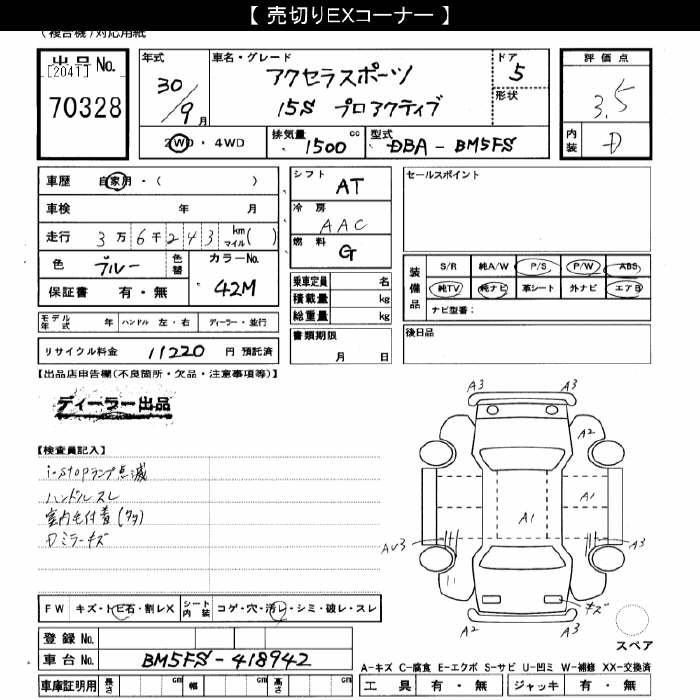 【 売切りEXコーナー 】
(複合機)対応用紙
出品 No.
[2041]
70328
年式
30/9月
車名・グレード
アクセラスポーツ
15S プロアクティブ
ドア
5
形状
評価点
3.5
内装
D
2WD・4WD
排気量
1500 cc
型式
DBA-BM5FS
車歴 自家用・( )
車検 年 月
走行 3万6千243 km マイル( )
色 ブルー 色替
カラーNo. 42M
保証書 有・無
シフト AT
冷房 AAC
燃料 G
乗車定員 名
積載量 kg
総重量 kg
セールスポイント
装備品
S/R 純A/W P/S P/W ABS
純TV 純ナビ 革シート 外ナビ エアB
ナビ型番:
モデル年式 年 ハンドル 左・右 ディーラー・並行
リサイクル料金 11220 円 預託済
書類期限
月 日
後日品
【出品店申告欄(不良箇所・欠品・注意事項等)】
ディーラー出品
【検査員記入】
i-stopランプ点滅
ハンドルスレ
室内毛付着(多)
Dミラーキズ
A3 A3
A2
A1
A1
AU3 A3
キズ
A2 A3
スペア
FW キズ・トビ石・割レX シート内装 コゲ・穴・汚レ・シミ・破レ・スレ
登録 No.
車台 No. BM5FS-418942
車庫証明用 長さ cm 幅 cm 高さ cm
A-キズ C-腐食 E-エクボ S-サビ U-凹ミ W-補修 XX-交換済
工具 有・無 ジャッキ 有・無